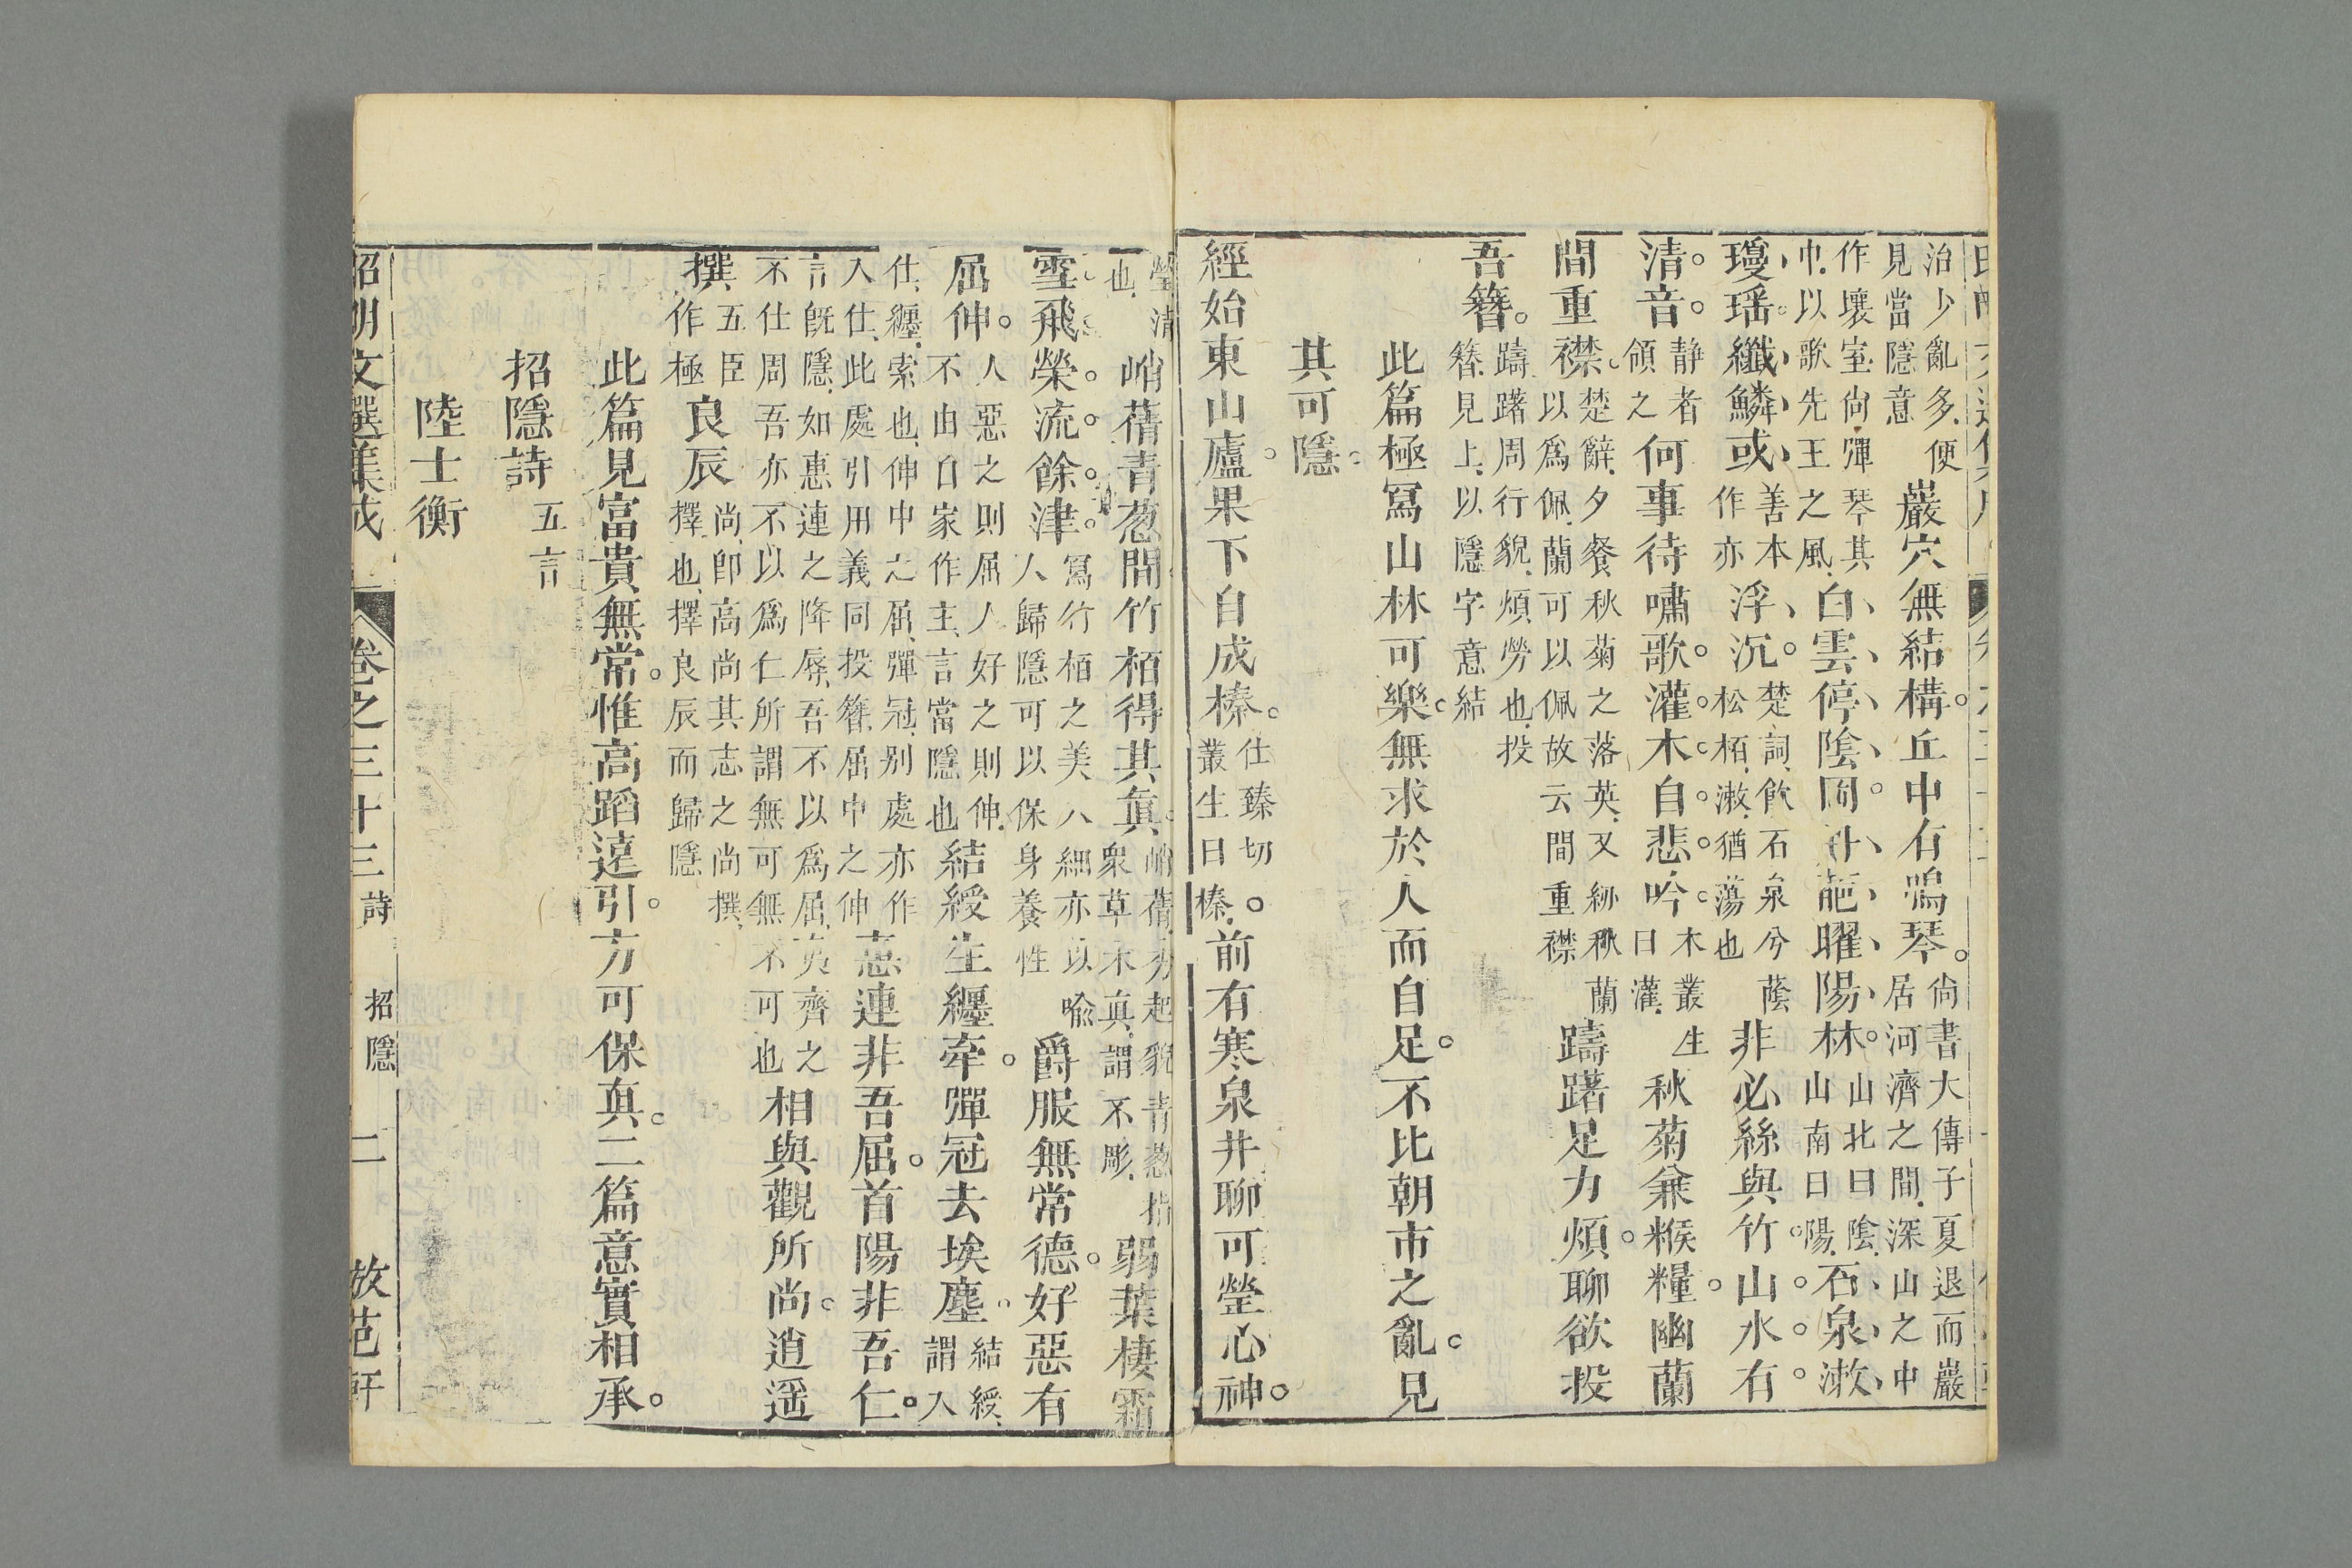 治少亂多便
見當隱意
巖穴無結構。丘中有鳴琴。
尙書大傳子夏退而巖
居河濟之間深山之中
作壞室尙彈琴其
中以歌先王之風
白雲停陰岡丹葩曜陽林。
山北曰陰
山南曰陽
石泉漱
瓊瑶。纖鱗或
善本
作亦
浮沉。
楚詞飮石泉兮蔭
松栢漱猶蕩也
非必絲與竹。山水有
清音。
静者
領之
何事待嘯歌。灌木自悲吟。
木叢生
曰灌
秋菊兼糇糧。幽蘭
間重襟。
楚辭夕餐秋菊之落英又紉秋蘭
以爲佩蘭可以佩故云間重襟
躊躇足力煩。聊欲投
吾簪。
躊躇周行貌煩勞也投
簪見上以隱字意結
此篇極寫山林可樂。無求於人而自足。不比朝市之亂。見
其可隱。
經始東山廬。果下自成榛。
仕臻切
叢生曰榛
前有寒泉井聊可瑩心神。
瑩清
也
峭蒨青葱間竹栢得其真。
峭蒨秀起貌青葱指
衆草木真謂不彫
弱葉棲霜
雪。飛榮流餘津。
寫竹栢之美入細亦以喩
人歸隱可以保身養性
爵服無常德。好惡有
屈伸。
人惡之則屈人好之則伸
不由自家作主言當隱也
結綬生纏牽。彈冠去埃塵。
結綬
謂入
仕纒索也伸中之屈彈冠别處亦作
入仕此處引用義同投簪屈中之伸
惠連非吾屈。首陽非吾仁。
言旣隱如惠連之降辱吾不以爲屈夷齊之
不仕周吾亦不以爲仁所謂無可無不可也
相與觀所尚。逍遥
撰
五臣
作極
良辰
尚卽高尚其志之尚撰
擇也擇良辰而歸隱
此篇見富貴無常。惟高蹈遠引。方可保真。二篇意實相承。
招隱詩
五言
陸士衡
昭明文選集成
卷之三十三
詩
招隱
二
放范軒